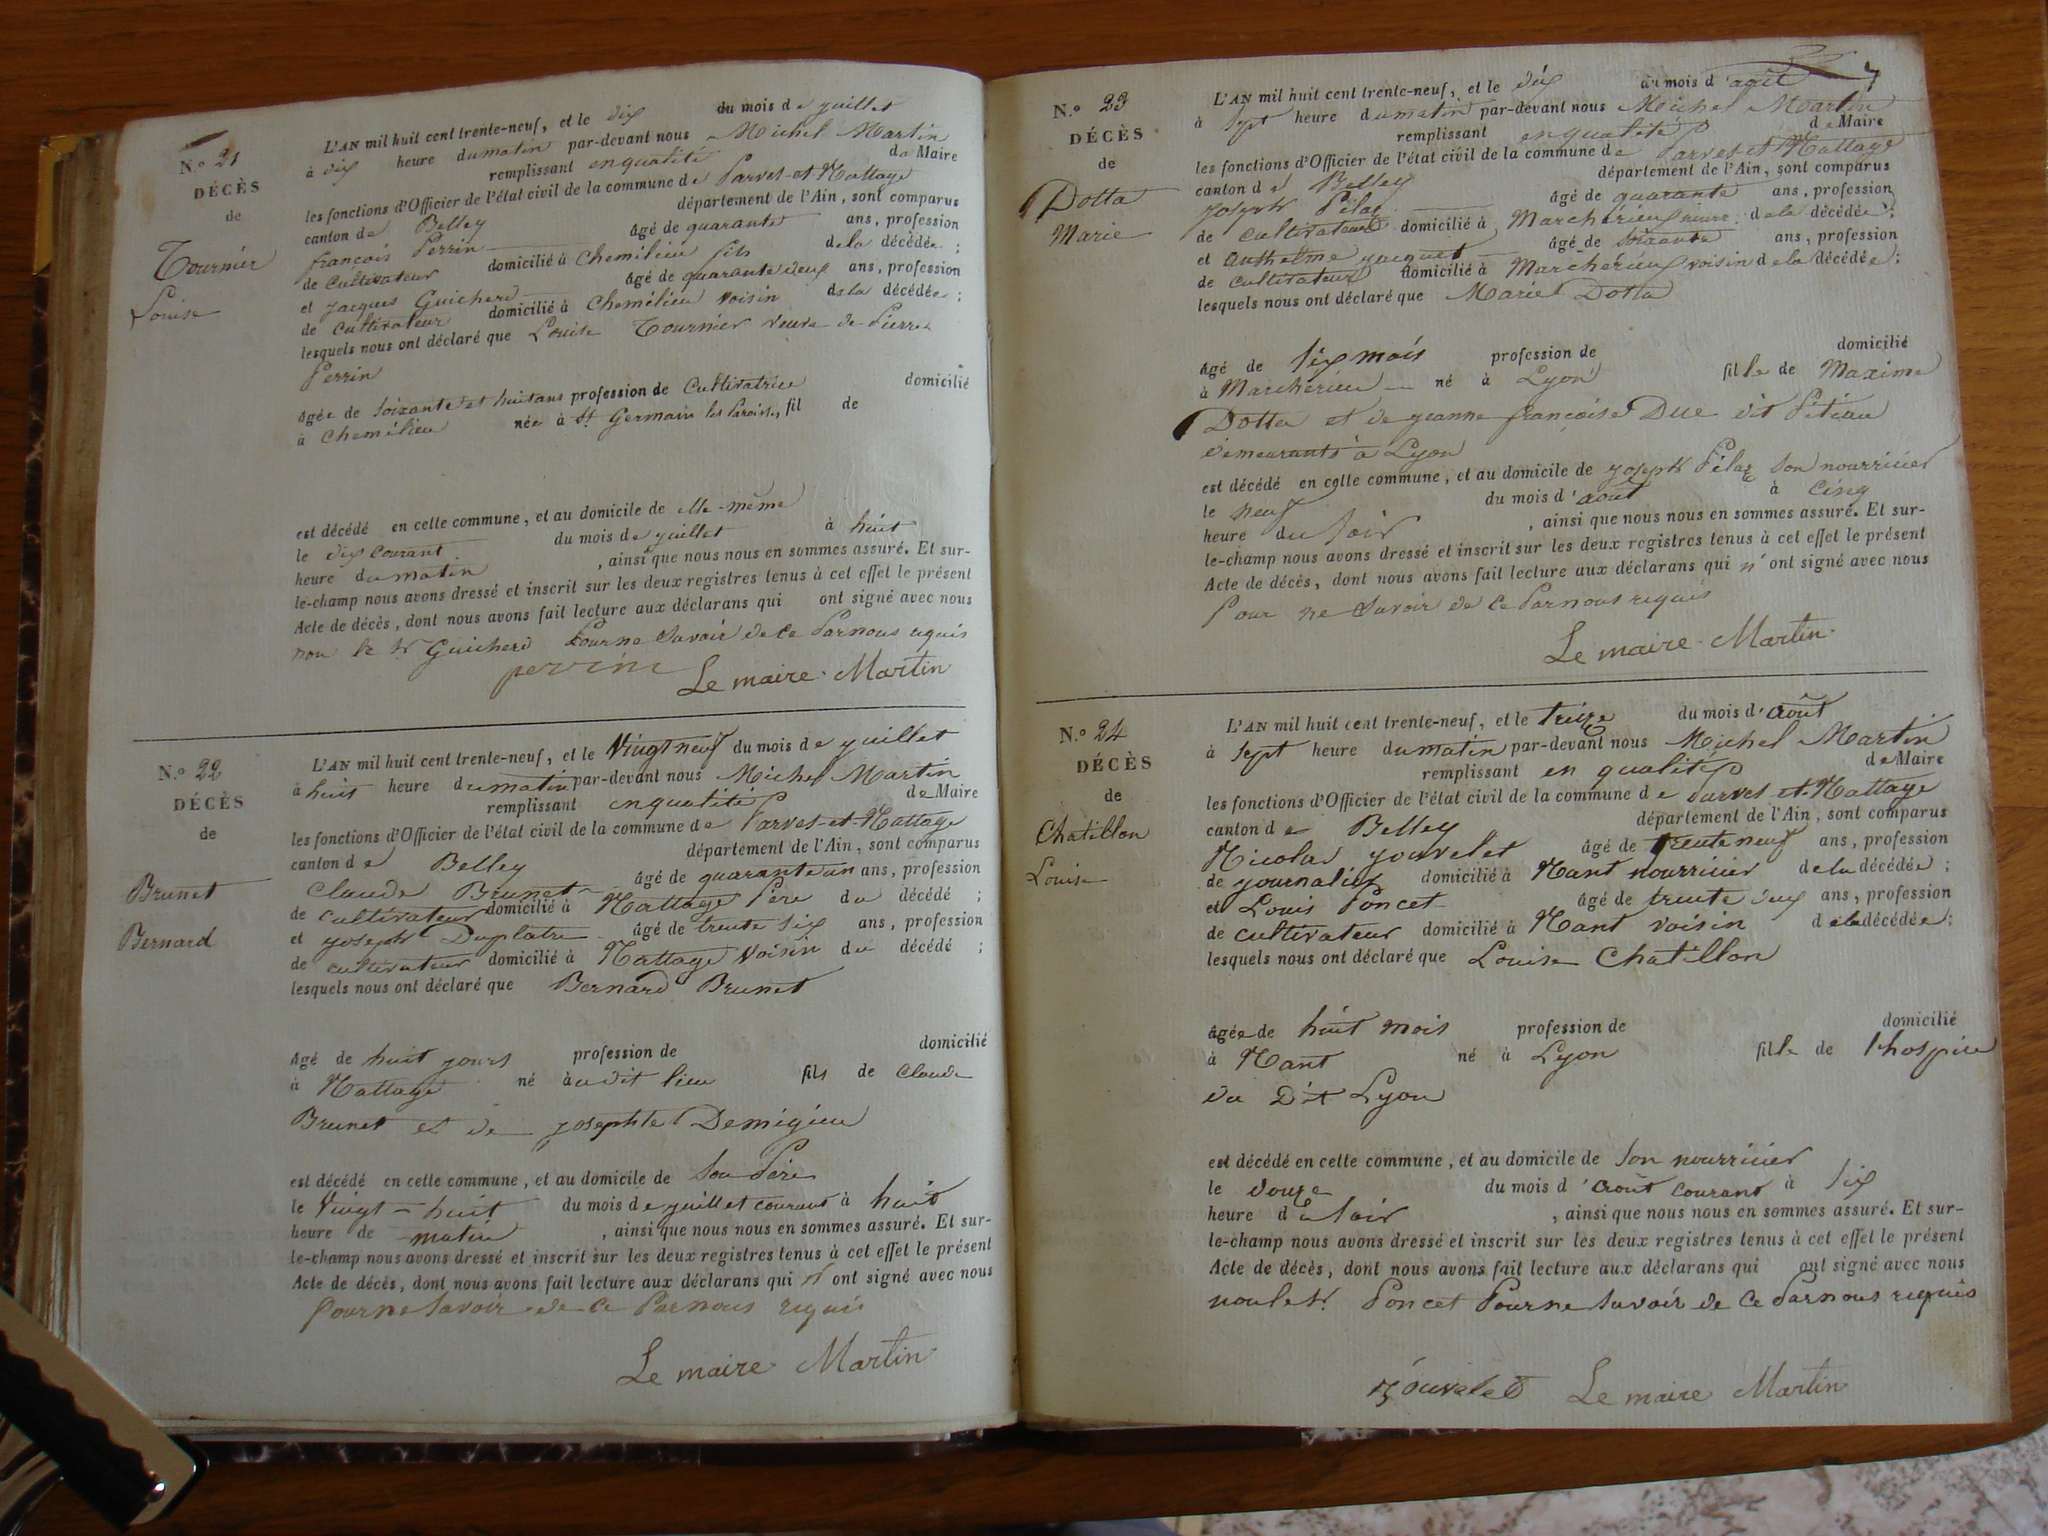 N.º 21
DÉCÈS
de
Tournier
Louise
L'AN mil huit cent trente-neuf, et le dix du mois de juillet
à dix heure du matin par-devant nous Michel Martin
remplissant en qualité de Maire
les fonctions d'Officier de l'état civil de la commune de Parves-et-Nattage
canton de Belley département de l'Ain, sont comparus
françois Perrin âgé de quarante ans, profession
de cultivateur domicilié à Chemilieu fils de la décédée ;
et jacques Guicherd âgé de quarante deux ans, profession
de cultivateur domicilié à Chemélieu voisin de la décédée ;
lesquels nous ont déclaré que Louise Tournier veuve de Pierre
Perrin
âgée de soixante et huit ans profession de Cultivatrice domicilié
à Chemélieu née à St Germain les Paroisses, fil de
est décédé en cette commune, et au domicile de elle-même
le dix courant du mois de juillet à huit
heure du matin , ainsi que nous nous en sommes assuré. Et sur-
le-champ nous avons dressé et inscrit sur les deux registres tenus à cet effet le présent
Acte de décès, dont nous avons fait lecture aux déclarans qui ont signé avec nous
non le Sr Guicherd Pour ne Savoir de ce Par nous requis
perrin Le maire Martin
N.º 22
DÉCÈS
de
Brunet
Bernard
L'AN mil huit cent trente-neuf, et le Vingt neuf du mois de juillet
à huit heure du matin par-devant nous Michel Martin
remplissant en qualité de Maire
les fonctions d'Officier de l'état civil de la commune de Parves-et-Nattage
canton de Belley département de l'Ain, sont comparus
Claude Brunet âgé de quarante un ans, profession
de cultivateur domicilié à Nattage Père du décédé ;
et joseph Duplatre âgé de trente six ans, profession
de cultivateur domicilié à Nattage Voisin du décédé ;
lesquels nous ont déclaré que Bernard Brunet
âgé de huit jours profession de domicilié
à Nattage né à u dit lieu fils de Claude
Brunet et de josephte Demigieu
est décédé en cette commune, et au domicile de Son Père
le Vingt-huit du mois de juillet courant à huit
heure de matin , ainsi que nous nous en sommes assuré. Et sur-
le-champ nous avons dressé et inscrit sur les deux registres tenus à cet effet le présent
Acte de décès, dont nous avons fait lecture aux déclarans qui n'ont signé avec nous
Pour ne Savoir de ce Par nous requis
Le maire Martin
7
N.º 23
DÉCÈS
de
Dotta
Marie
L'AN mil huit cent trente-neuf, et le dix du mois d'août
à Sept heure du matin par-devant nous Michel Martin
remplissant en qualité de Maire
les fonctions d'Officier de l'état civil de la commune de Parves-et-Nattage
canton de Belley département de l'Ain, sont comparus
joseph Pélaz âgé de quarante ans, profession
de cultivateur domicilié à Marchérieux de la décédée ;
et Anthelme jacquet âgé de soixante ans, profession
de cultivateur domicilié à Marchérieux voisin de la décédée ;
lesquels nous ont déclaré que Marie Dotta
âgé de Six mois profession de domicilié
à Marchérieu né à Lyon fille de Maxime
Dotta et de jeanne françoise Duc dit Pétiau
demeurants à Lyon
est décédé en cette commune, et au domicile de joseph Pélaz Son nourricier
le neuf du mois d'août à cinq
heure du Soir , ainsi que nous nous en sommes assuré. Et sur-
le-champ nous avons dressé et inscrit sur les deux registres tenus à cet effet le présent
Acte de décès, dont nous avons fait lecture aux déclarans qui n'ont signé avec nous
Pour ne Savoir de ce Par nous requis
Le maire Martin
N.º 24
DÉCÈS
de
Chatillon
Louise
L'AN mil huit cent trente-neuf, et le treize du mois d'août
à Sept heure du matin par-devant nous Michel Martin
remplissant en qualité de Maire
les fonctions d'Officier de l'état civil de la commune de Parves-et-Nattage
canton de Belley département de l'Ain, sont comparus
Nicolas jouvelet âgé de trente neuf ans, profession
de journalier domicilié à Nant nourricier de la décédée ;
et Louis Poncet âgé de trente deux ans, profession
de cultivateur domicilié à Nant voisin de la décédée ;
lesquels nous ont déclaré que Louise Chatillon
âgée de huit mois profession de domicilié
à Nant né à Lyon fille de l'hospice
du Dit Lyon
est décédé en cette commune, et au domicile de Son nourricier
le douze du mois d'août courant à Six
heure du Soir , ainsi que nous nous en sommes assuré. Et sur-
le-champ nous avons dressé et inscrit sur les deux registres tenus à cet effet le présent
Acte de décès, dont nous avons fait lecture aux déclarans qui ont signé avec nous
non le Sr Poncet Pour ne Savoir de ce Par nous requis
jouvelet Le maire Martin